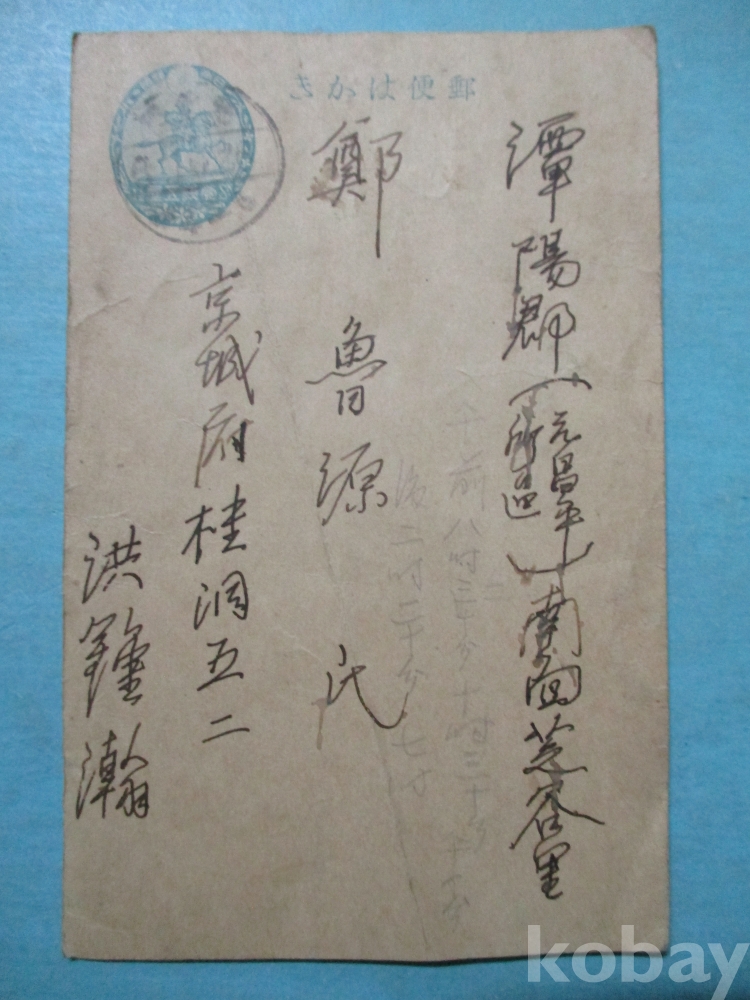 郵便はがき
潭陽郡(元昌平
所邑)南面芝谷里
鄭魯源氏
京城府桂洞五二
洪鐘瀚
午前八時三十分十時三十分
後二時二十分七分
kobay